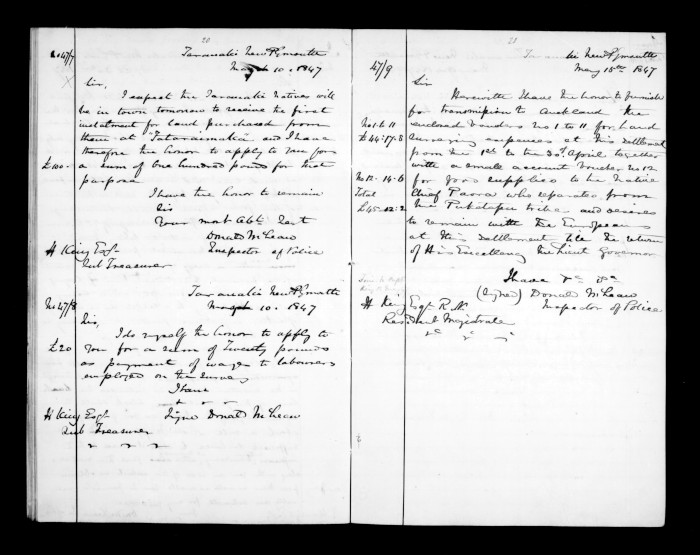 20
No 47/7
Taranaki New Plymouth
10. 1847
Sir,
I expect the Taranaki Natives will
be in town tomorrow to receive the first
instalment for land purchased from
them at Tataraimaka and I have
therefore the honor to apply to you for
£100- a sum of one hundred pounds for that
purpose
I have the honor to remain
Sir
Your most Obt Sert
Donald McLean
Inspector of Police
H King Esqr
Sub Treasurer
Taranaki New Plymouth
No 47/8
10. 1847
Sir,
I do myself the honor to apply to
£20 you for a sum of Twenty pounds
as payment of wages to labourers
employed on the survey
I have
H King Esqr Signd Donald McLean
Sub Treasurer
21
New Plymouth
47/9
May 15th 1847
Sir
Herewith I have the honor to furnish
for transmission to Auckland the
No 1 to 11 enclosed Vouchers No 1 to 11 for Land
£44-17-8 Surveying expenses at this settlement
from the 1st to the 30th April together
with a small account Voucher No 12
No 12-14-6 for food supplies to the Native
Total Chief Paora who separated from
£45-12-2 the Puketapu tribe and desires
to remain with the Europeans
at this settlement till the return
of His Excellency the Lieut Governor
I have &c &c
(Signed) Donald McLean
H King Esqr R.N. Inspector of Police
Resident Magistrate